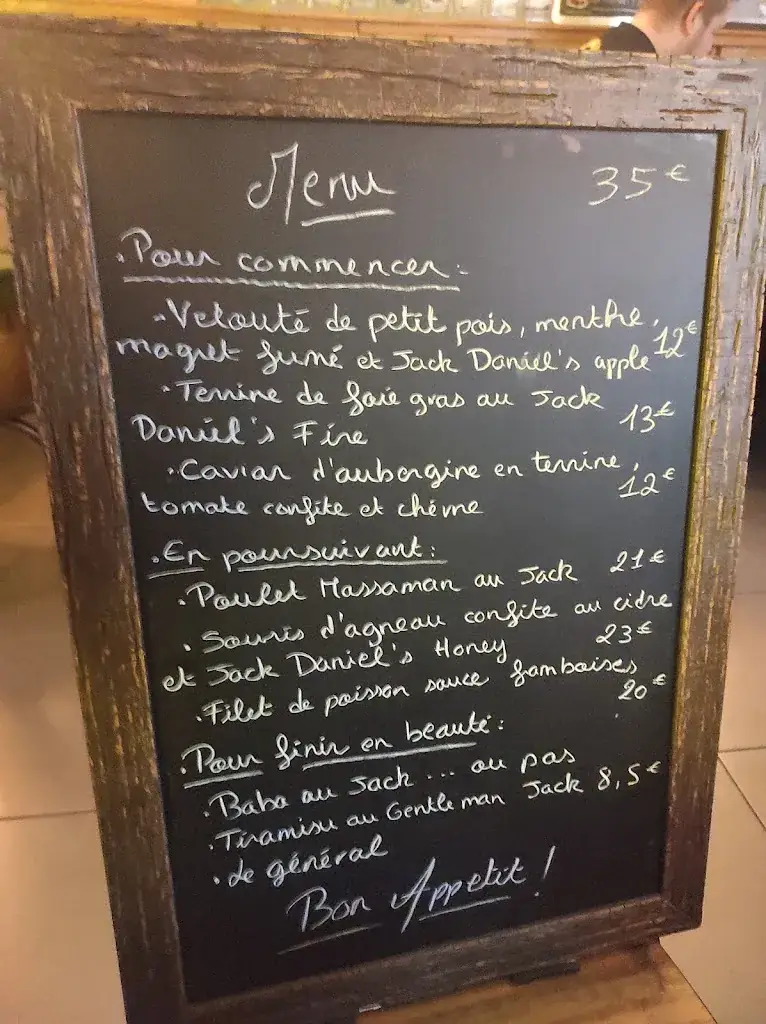 Menu 35€
. Pour commencer :
. Velouté de petit pois, menthe,
magret fumé et Jack Daniel's apple 12€
. Terrine de foie gras au Jack
Daniel's Fire 13€
. Caviar d'aubergine en terrine,
tomate confite et chèvre 12€
. En poursuivant :
. Poulet Massaman au Jack 21€
. Souris d'agneau confite au cidre
et Jack Daniel's Honey 23€
. Filet de poisson sauce framboises
20€
. Pour finir en beauté :
. Baba au Jack ... ou pas
. Tiramisu au Gentleman Jack 8,5€
. Le général
Bon Appetit !